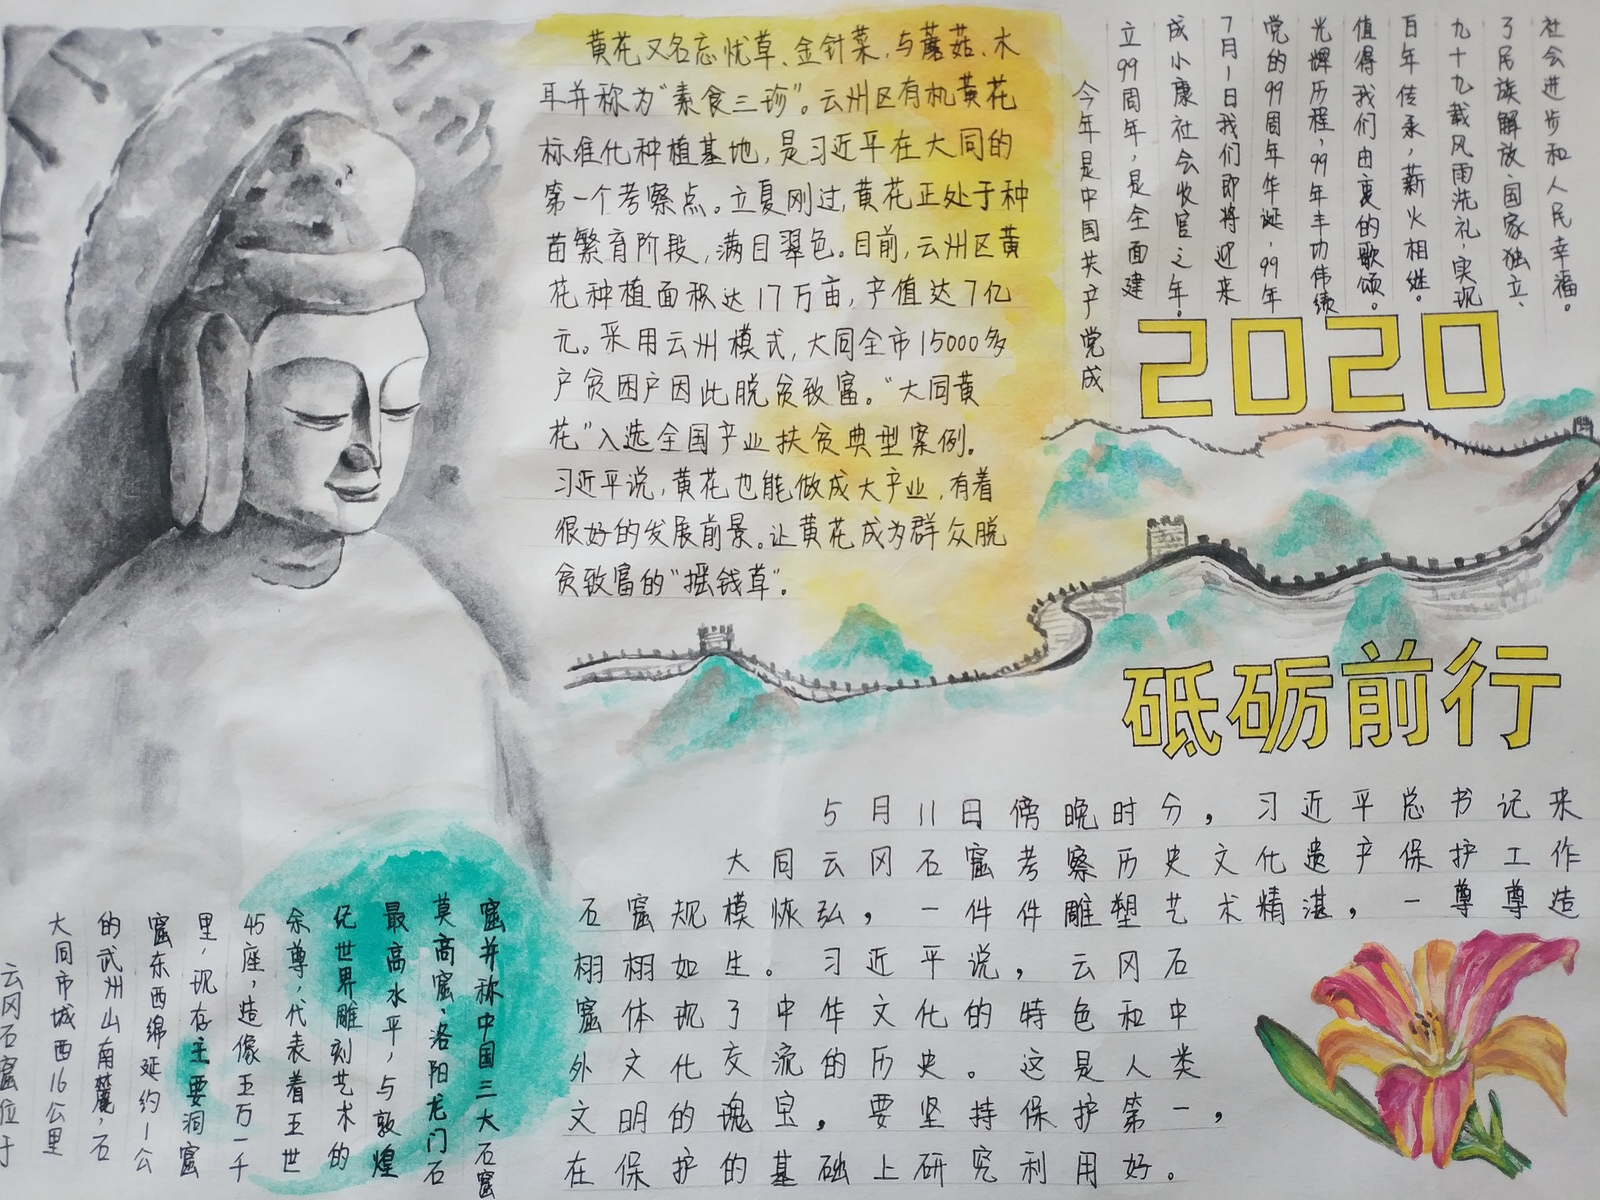 黄花又名忘忧草、金针菜,与蘑菇、木
耳并称为“素食三珍”。云州区有机黄花
标准化种植基地,是习近平在大同的
第一个考察点。立夏刚过,黄花正处于种
苗繁育阶段,满目翠色。目前,云州区黄
花种植面积达17万亩,产值达7亿
元。采用云州模式,大同全市15000多
户贫困户因此脱贫致富。“大同黄
花”入选全国产业扶贫典型案例。
习近平说,黄花也能做成大产业,有着
很好的发展前景。让黄花成为群众脱
贫致富的“摇钱草”。
今年是中国共产党成
立99周年,是全面建
成小康社会收官之年。
7月1日我们即将迎来
党的99周年华诞,99年
光辉历程,99年丰功伟绩
值得我们由衷的歌颂。
百年传承,薪火相继。
九十九载风雨洗礼,实现
了民族解放、国家独立、
社会进步和人民幸福。
2020
砥砺前行
5月11日傍晚时分,习近平总书记来
大同云冈石窟考察历史文化遗产保护工作
石窟规模恢弘,一件件雕塑艺术精湛,一尊尊造
栩栩如生。习近平说,云冈石
窟体现了中华文化的特色和中
外文化交流的历史。这是人类
文明的瑰宝,要坚持保护第一,
在保护的基础上研究利用好。
云冈石窟位于
大同市城西16公里
的武州山南麓,石
窟东西绵延约1公
里,现存主要洞窟
45座,造像五万一千
余尊,代表着五世
纪世界雕刻艺术的
最高水平,与敦煌
莫高窟、洛阳龙门石
窟并称中国三大石窟